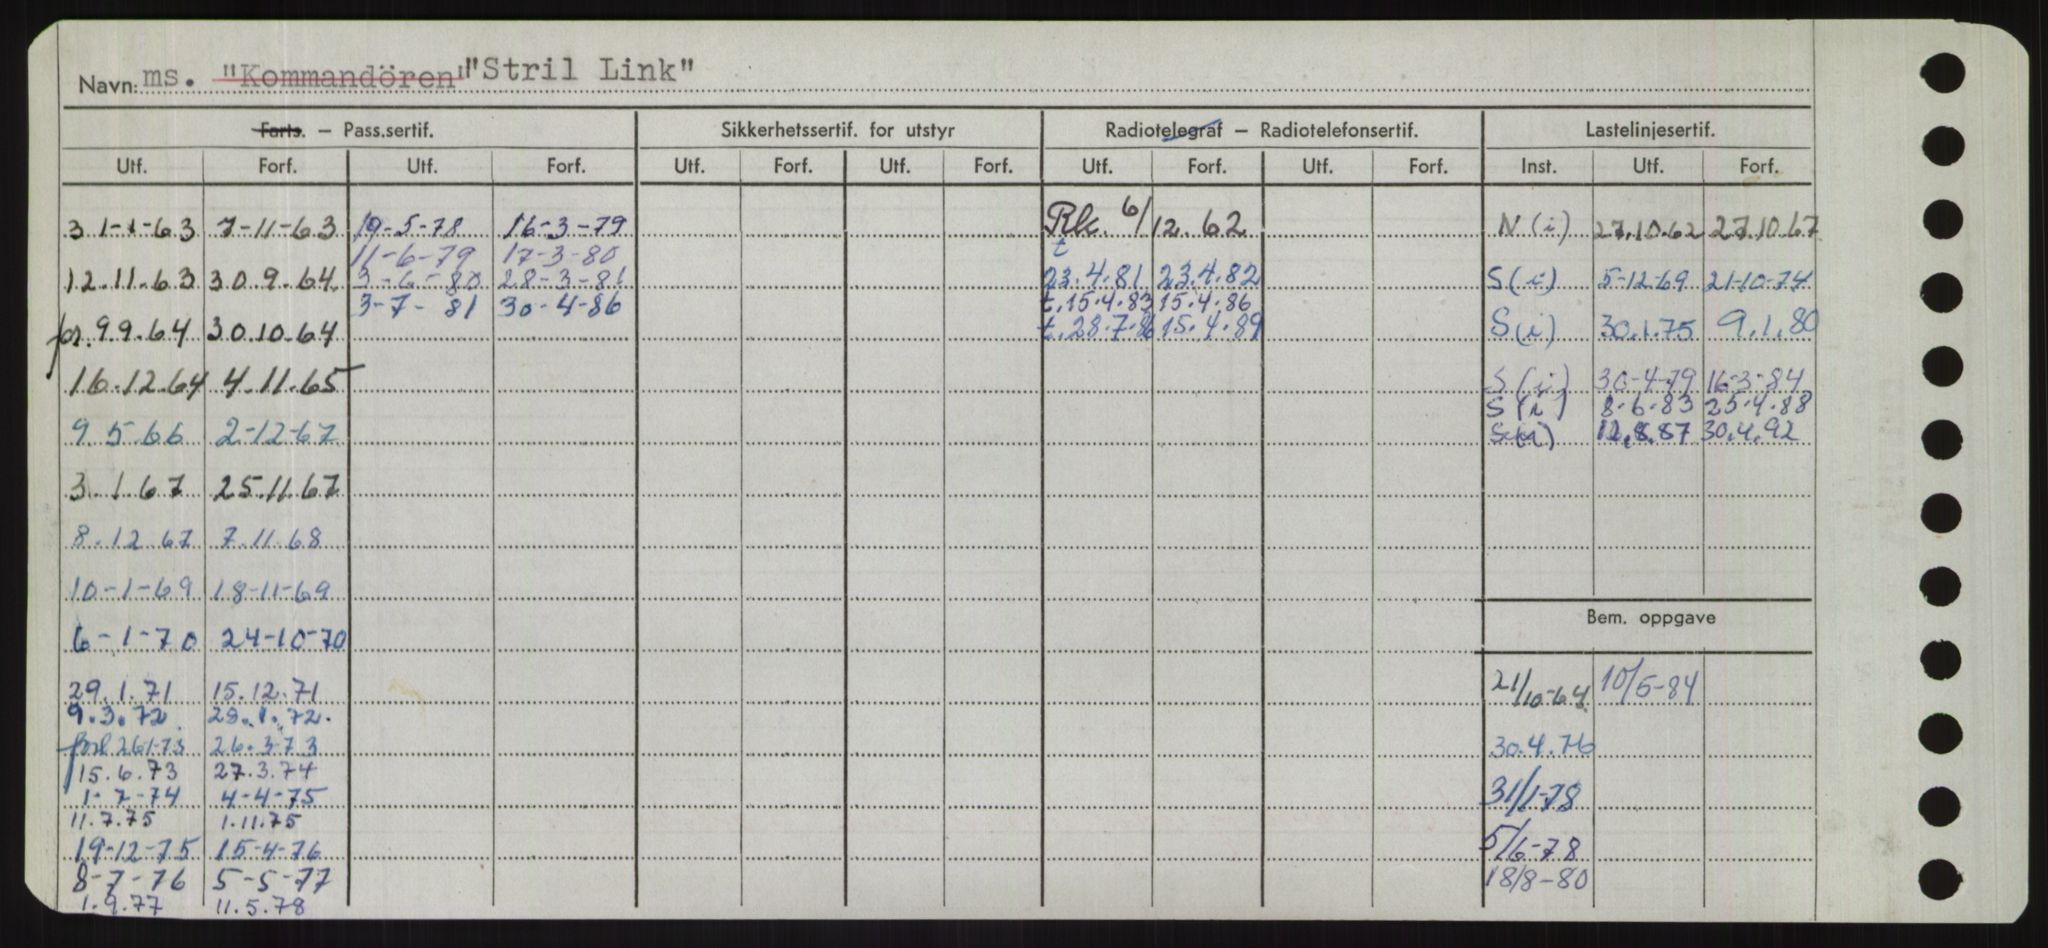 Navn: ms. "Kommandören" "Stril Link"
Farts. – Pass.sertif. Sikkerhetssertif. for utstyr Radiotelegraf – Radiotelefonsertif. Lastelinjesertif.
Utf. Forf. Utf. Forf. Utf. Forf. Utf. Forf. Utf. Forf. Utf. Forf. Inst. Utf. Forf.
31-1-63 7-11-63 19-5-78 16-3-79 Rk. 6/12.62 N(i) 27.10.62 27.10.67
11-6-79 17-3-80 t
12.11.63 30.9.64 3-6-80 28-3-81 23.4.81 23.4.82 S(i) 5-12-69 21-10-74
3-7-81 30-4-86 t.15.4.83 15.4.86
for. 9.9.64 30.10.64 t.28.7.86 15.4.89 S(i) 30.1.75 9.1.80
16.12.64 4.11.65 S(i) 30-4-79 16-3-84
S(i) 8.6.83 25.4.88
9.5.66 2-12-67 S(i) 12.8.87 30.4.92
3.1.67 25.11.67
8.12.67 7.11.68
10-1-69 18-11-69
Bem. oppgave
6-1-70 24-10-70
29.1.71 15.12.71 21/10-64 10/5-84
9.3.72 29.1.72.
forl 26.1-73 26.3-73 30.4.76
15.6.73 27.3.74
1-7-74 4-4-75 31/1-78
11.7.75 1.11.75
19-12-75 15-4-76 5/6-78
8-7-76 5-5-77 18/8-80
1.9.77 11.5.78